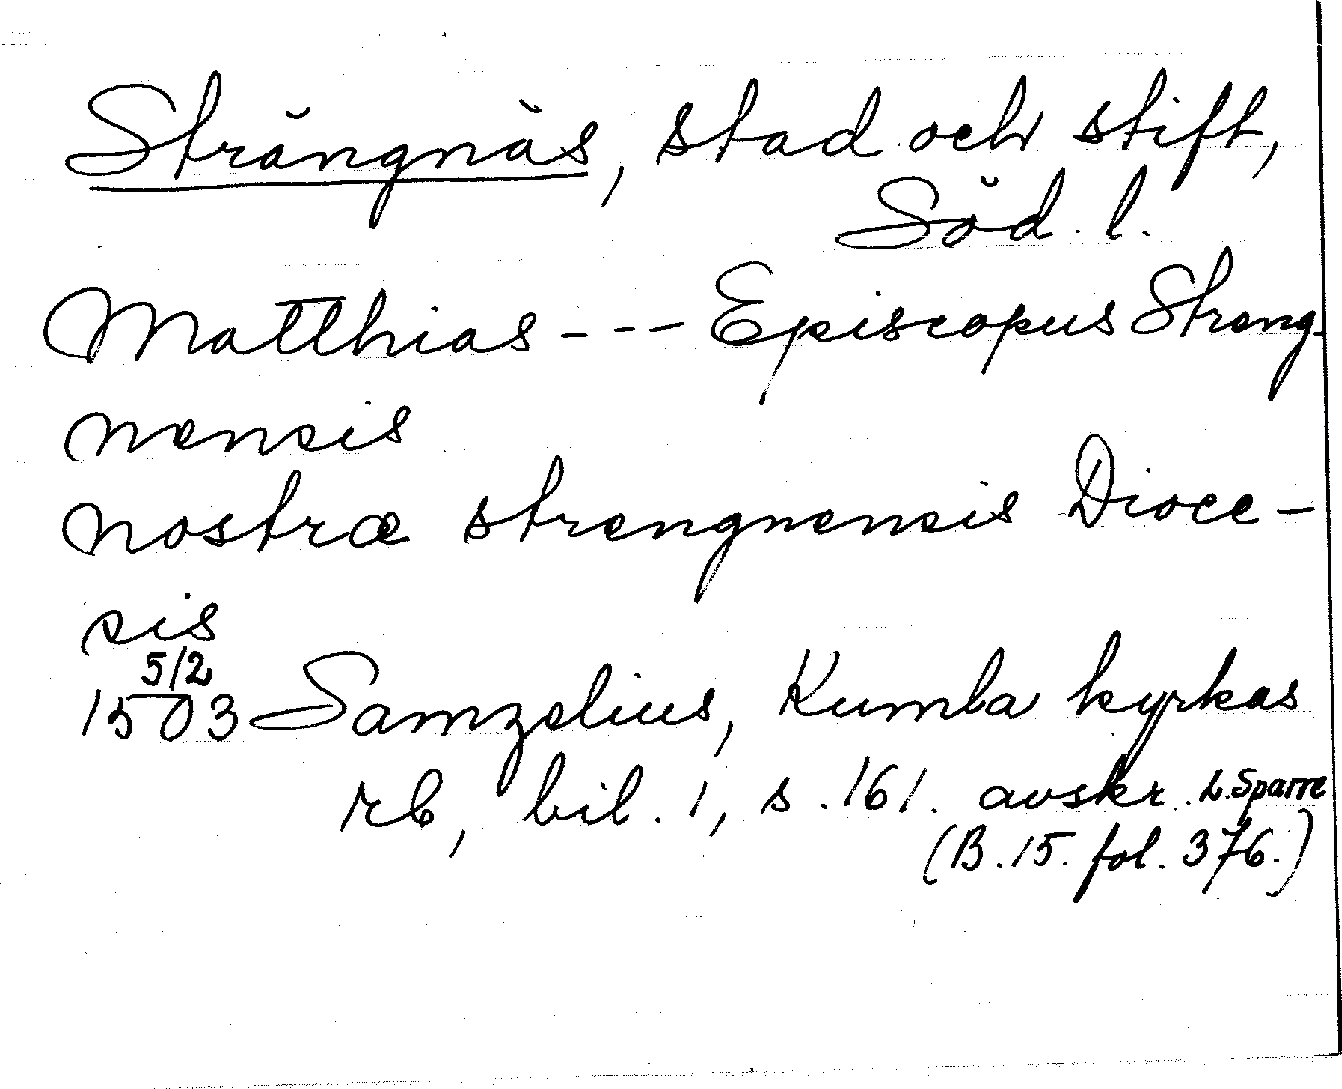 Strängnäs, stad och stift,
Söd. l.
Matthias --- Episcopus Streng-
nensis
nostræ strengnensis Dioce-
sis
5/2
1503 Samzelius, Kumla kyrkas
rb, bil. 1, s. 161. avskr. L. Sparre
(B. 15. fol. 376.)